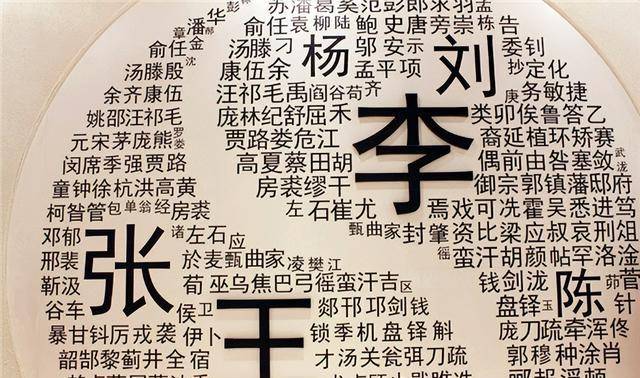 苏潘葛奚范彭郎
俞任袁柳陆鲍史唐旁崇栋告
潘华
章金
俞任
汤滕刁
杨
邬安示
刘
委钊
汤滕殷
沈
康伍余
孟平项
抄定化
余齐康伍
汪祁毛禹阎谷苟齐
庚务敏捷
姚邵汪祁毛
庞林纪舒屈禾
李
类卯俟鲁答乙
元宋茅庞熊罗娄
贾路娄危江
裔延植环矫赛
闵席季强贾路
高夏蔡田胡
偶前由昝塞敛武泷
童钟徐杭洪高黄
房裘缪干
御宗郭镇藩邸府
柯昝管包单翁经房裘
左石崔尤
焉戏可冼霍吴悉进笃
邓郁
张
诸左石应
甄曲家封肇资比梁应叔哀刑俎
邢裴
於麦甄曲家凌樊江
徭蛮汗胡颜帖罕洛淦
靳汲
荀巫乌焦巴弓徭蛮汗吉区
钱剑泷
陈
茆菅
谷车
侯卫
王
郯邗邛剑钱
盘铎玉
针
暴甘钭厉戎袭
伊卜
锁季机盘铎斛
庞刀疏牵浑佟
韶郜黎蓟井全宿
才汤关瓮弭刀疏
郭穆种涂肖